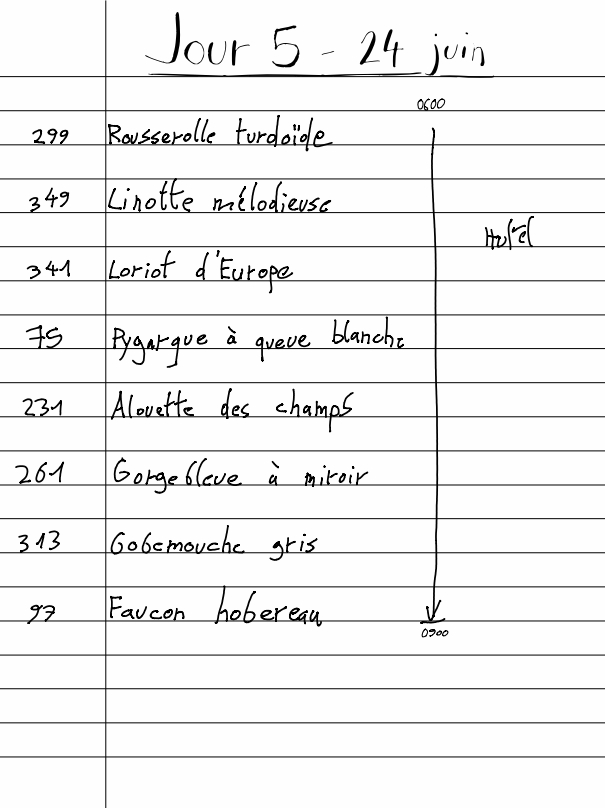 Jour 5 - 24 juin
0600
299 Rousserolle turdoïde
349 Linotte mélodieuse
Hôtel
341 Loriot d'Europe
75 Pygargue à queue blanche
231 Alouette des champs
261 Gorgebleue à miroir
313 Gobemouche gris
97 Faucon hobereau
0900